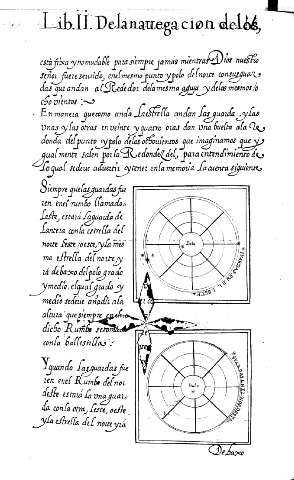 Lib. II. De la nauegacion de los,
esta fixa y nomudable para siempre jamas mientras Dios nuestro
señor fuere seruido, en el mesmo punto y polo del norte con sus guar
das que andan al Rededor de la mesma aguja y de los mesmos
cho vientos
En manera que como anda La estrella andan las guardas, y las
vnas y las otras en veinte y quatro oras dan vna buelta a la Re
donda del punto y polo de los ocho vientos que imaginamos que y
gual mente salen por la Redondez del, para entendimiento de
lo qual se deue aduertir y tener en la memoria la cuenta siguiente
Siempre que las guardas fue
ren en el rumbo llamado
Leste, estara la guarda de
lantera con la estrella del
norte leste oeste, y la mis
ma estrella del norte es
ta debaxo del polo grado
y medio. el qual grado y
medio se deue añadir a la
altura que siempre en el
dicho Rumbo se tomare
con la ballestilla:
Y quando las guardas fue
ren en el Rumbo del nor
deste estara la vna guar
da con la otra, leste, oeste
y la estrella del norte esta
De baxo